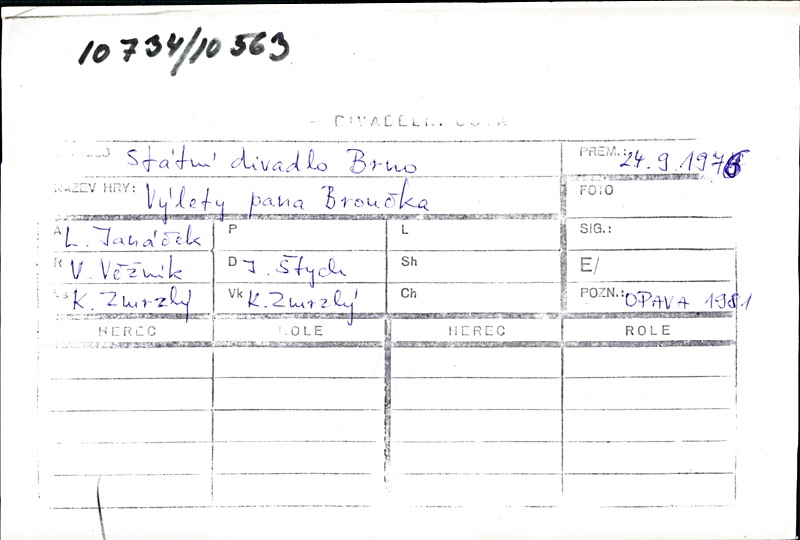 10734/10563
DIVADELNÍ
Státní divadlo Brno PREM.: 24.9.1976
NÁZEV HRY: Výlety pana Broučka FOTO
A L. Janáček P L SIG.:
R V. Věžník D J. Štych Sh E/
K. Zmrzlý Vk K. Zmrzlý Ch POZN.: OPAVA 1981
HEREC ROLE HEREC ROLE